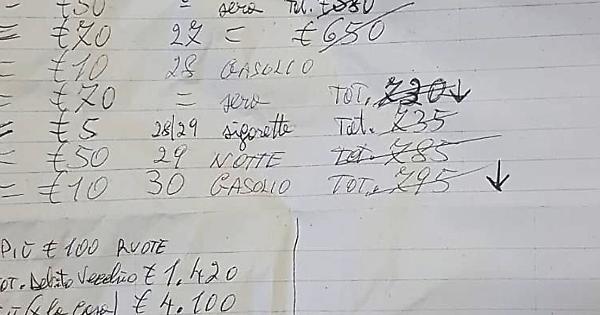 = €50 = sera Tot. €580
= €70 27 = €650
= €10 28 GASOLIO
= €70 = sera TOT. 730 ↓
= €5 28/29 sigarette Tot. 735
= €50 29 NOTTE Tot. 785
= €10 30 GASOLIO TOT. 795 ↓
PIÙ €100 RUOTE
TOT. Debito Vecchio €1.420
€4.100